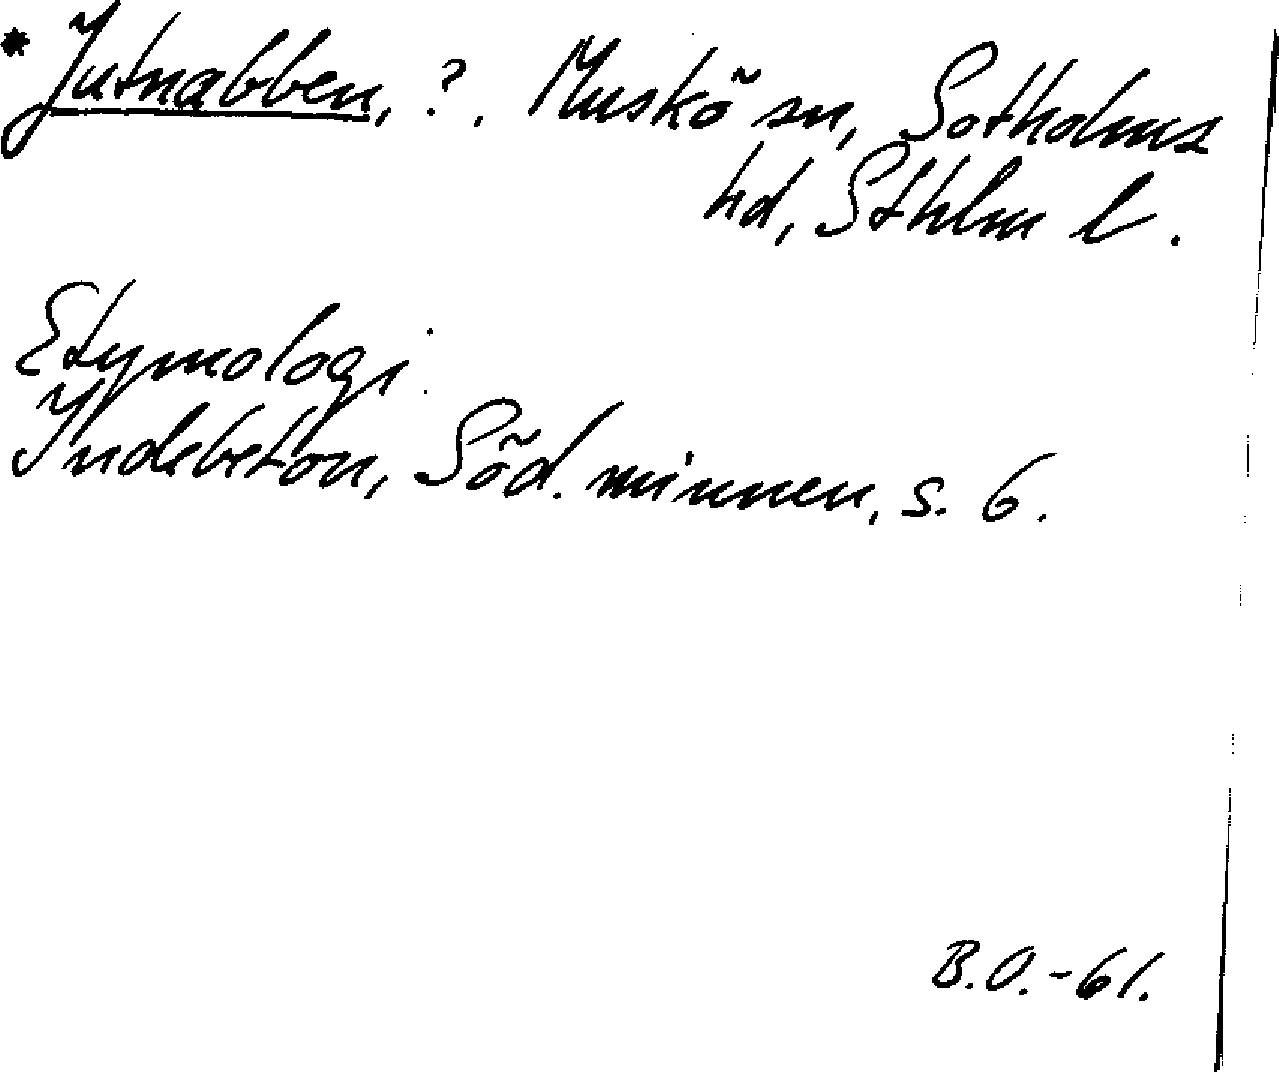 * Jutnabben, ?. Muskö sn, Sotholms
hd, Sthlm l.
Etymologi.
Indebetou, Söd. minnen, s. 6.
B.O.-61.